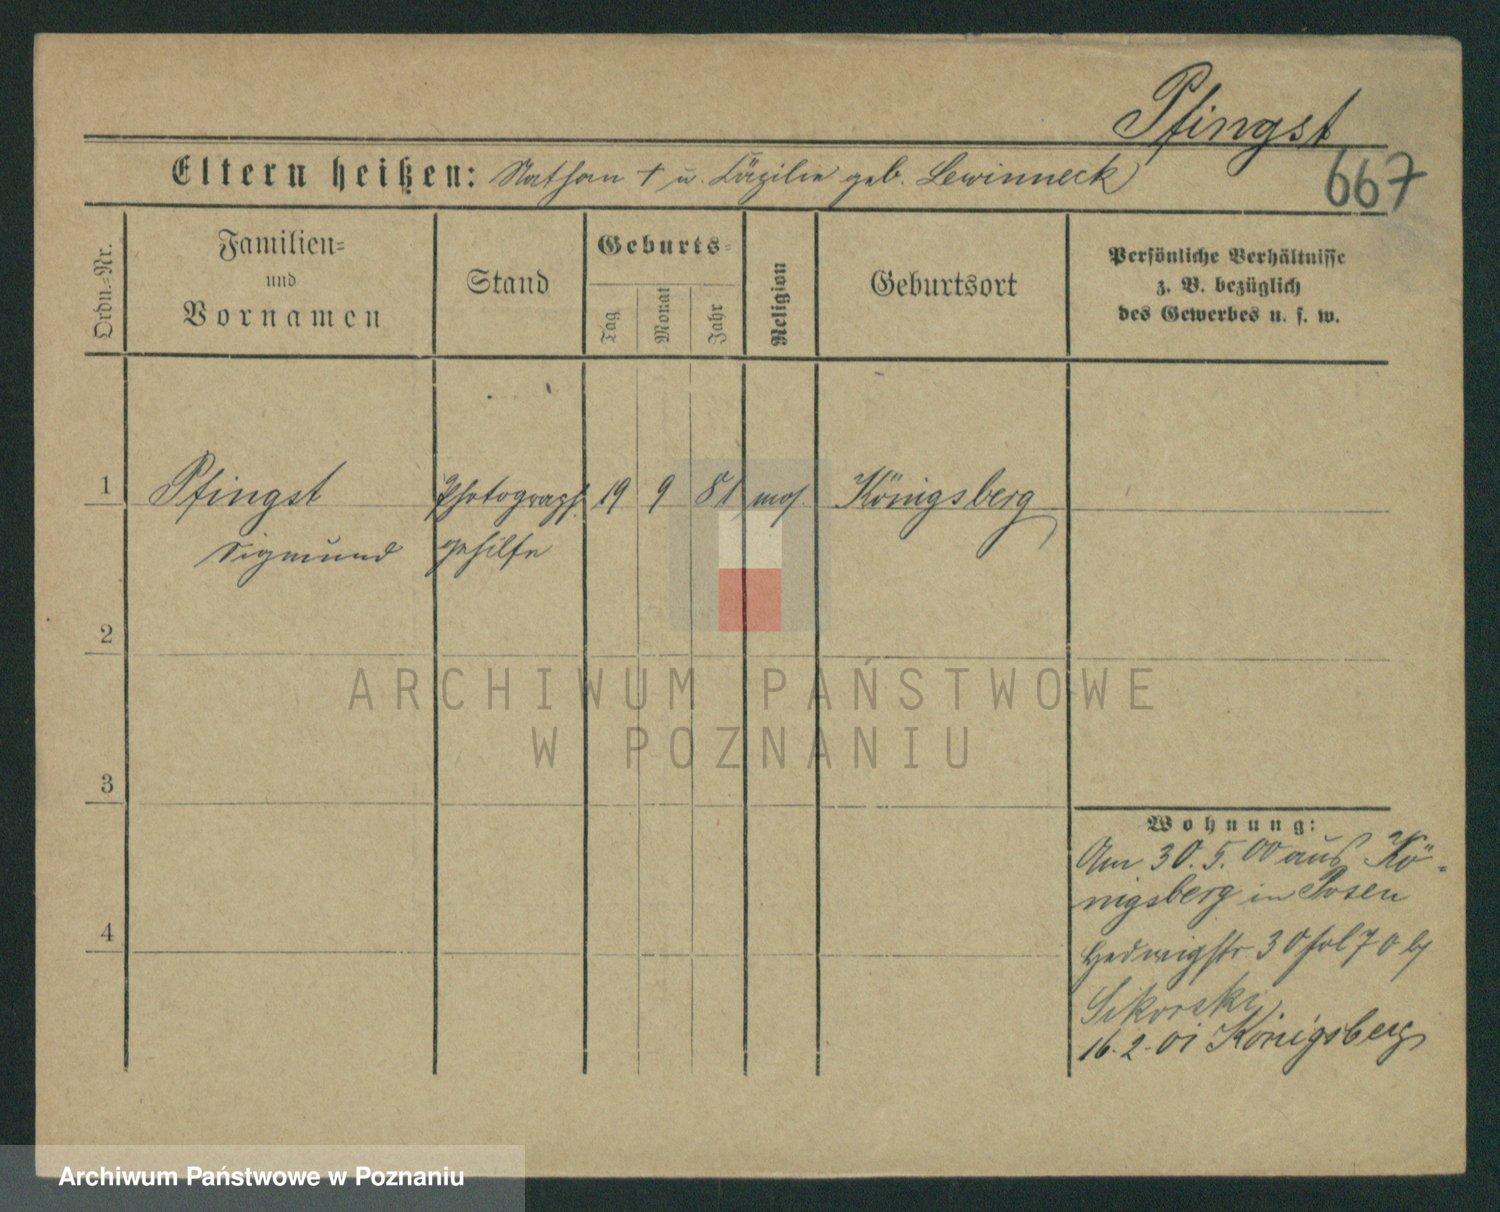 Pfingst
667
Eltern heißen: Nathan † u. Cäzilie geb. Lewinneck
Ordn.=Nr.
Familien=
und
Vornamen
Stand
Geburts=
Tag
Monat
Jahr
Religion
Geburtsort
Persönliche Verhältnisse
z. B. bezüglich
des Gewerbes u. s. w.
1 Pfingst Photograph. 19 9 81 mos. Königsberg
Sigmund gehilfe
2
ARCHIWUM PAŃSTWOWE
W POZNANIU
3
Wohnung:
Am 30.5.00 aus Kö-
nigsberg in Posen
4
Hedwigstr 30
Sikorski
16.2.01 Königsberg
Archiwum Państwowe w Poznaniu